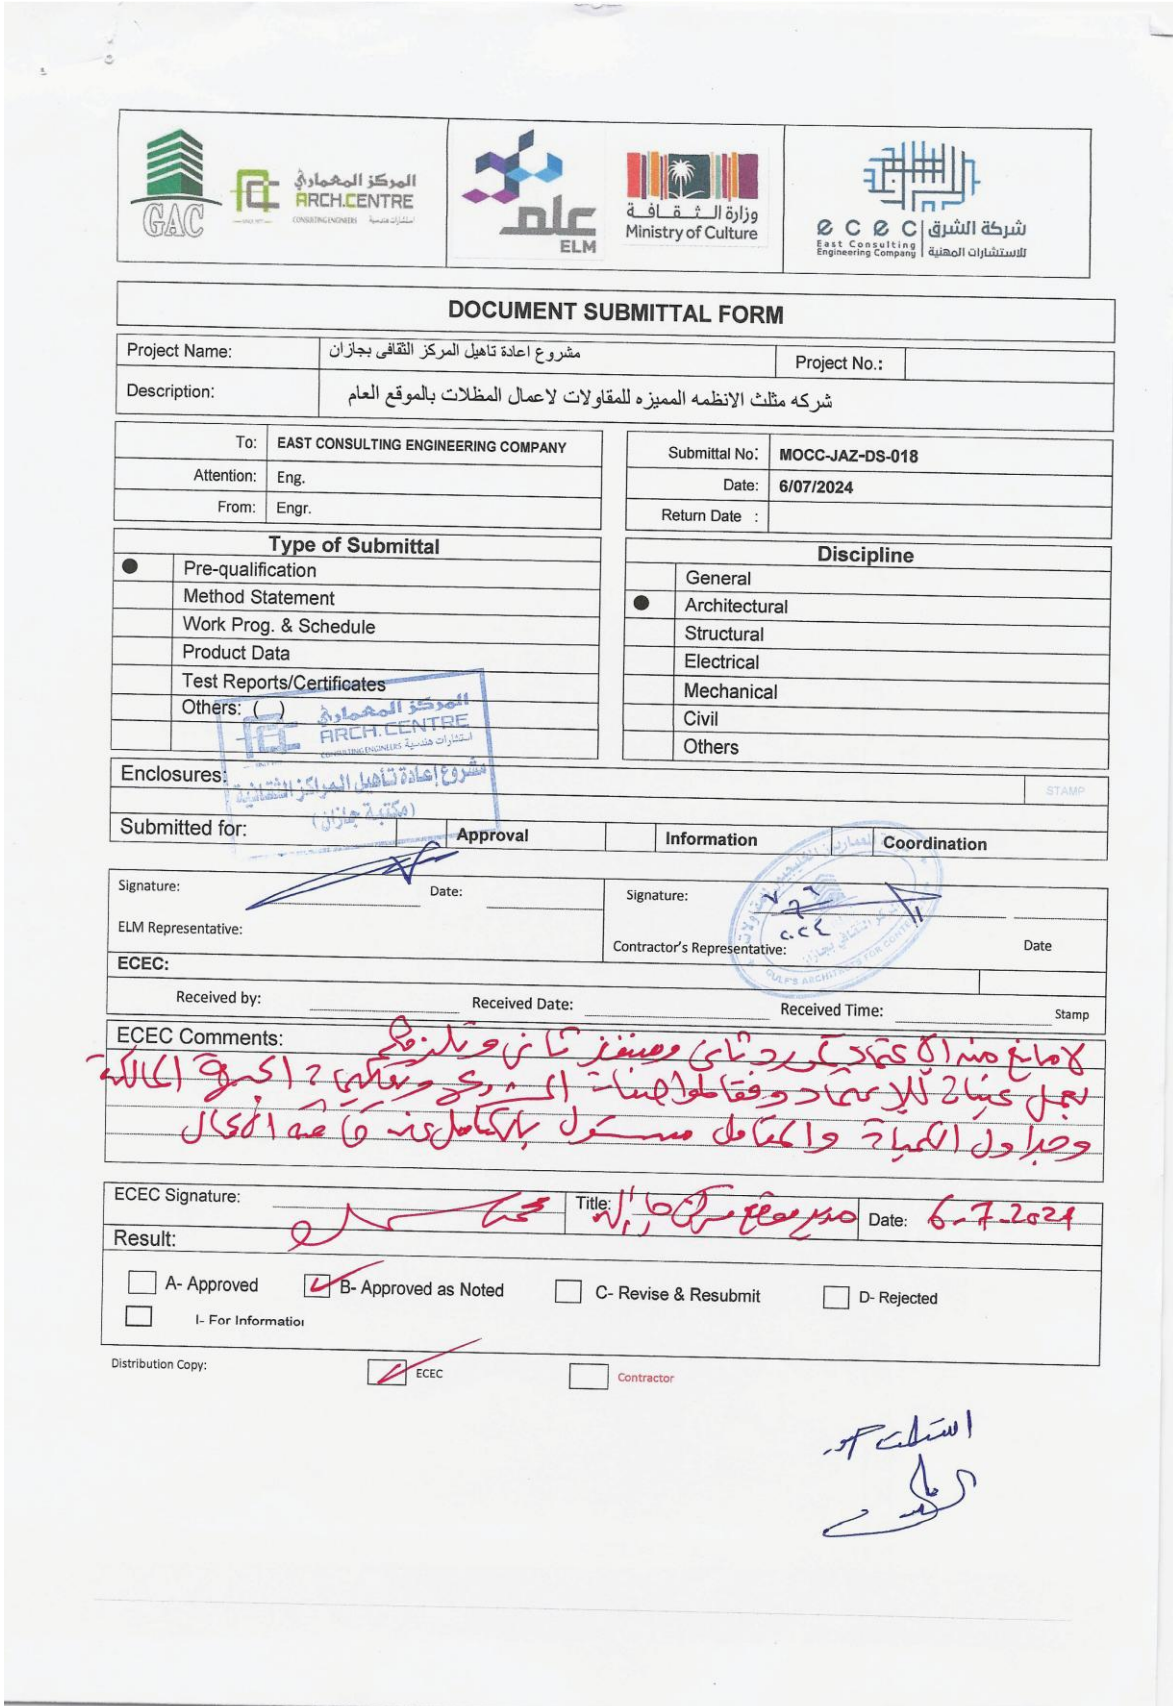 GAC
المركز المعماري
ARCH.CENTRE
CONSULTING ENGINEERS استشارات هندسية
علم
ELM
وزارة الثقافة
Ministry of Culture
ecec شركة الشرق
East Consulting Engineering Company للاستشارات المهنية
DOCUMENT SUBMITTAL FORM
Project Name: مشروع اعادة تاهيل المركز الثقافى بجازان Project No.:
Description: شركه مثلث الانظمه المميزه للمقاولات لاعمال المظلات بالموقع العام
To: EAST CONSULTING ENGINEERING COMPANY
Attention: Eng.
From: Engr.
Submittal No: MOCC-JAZ-DS-018
Date: 6/07/2024
Return Date :
Type of Submittal
● Pre-qualification
Method Statement
Work Prog. & Schedule
Product Data
Test Reports/Certificates
Others: ( )
Discipline
General
● Architectural
Structural
Electrical
Mechanical
Civil
Others
المركز المعماري
ARCH.CENTRE
CONSULTING ENGINEERS استشارات هندسية
مشروع إعادة تأهيل المراكز الثقافية
(مكتبة جازان)
Enclosures:
STAMP
Submitted for: Approval Information Coordination
Signature: Date:
ELM Representative:
Signature:
Contractor's Representative: Date
ECEC:
Received by: Received Date: Received Time: Stamp
ECEC Comments:
لا مانع من الاعتماد كمورد ثاني ومنفذ ثاني
عينات للاعتماد وفقا لمواصفات المشروع الجهة المالكة
وجداول الكميات والمقاول مسئول بالكامل عن كافة الأعمال
ECEC Signature: محمد Title: مدير موقع Date: 6-7-2024
Result:
A- Approved
B- Approved as Noted
C- Revise & Resubmit
D- Rejected
I- For Information
Distribution Copy: ECEC Contractor
استلمت